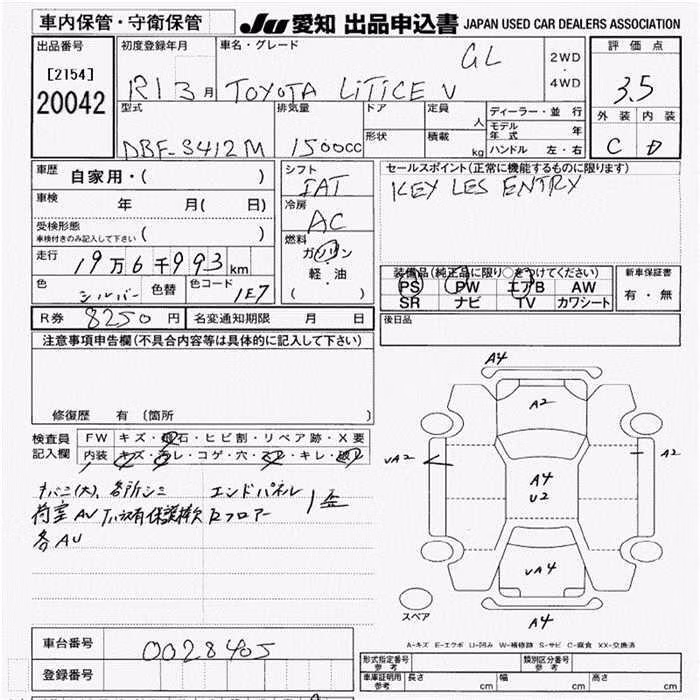 車内保管・守衛保管
JU 愛知 出品申込書 JAPAN USED CAR DEALERS ASSOCIATION
出品番号
[2154]
20042
初度登録年月
R1 3 月
車名・グレード
GL
TOYOTA
2WD
・
4WD
評価点
3.5
外装 内装
C D
型式
DBF-S412M
排気量
1500cc
ドア
形状
定員 人
積載 kg
ディーラー・並行
モデル年式 年
ハンドル 左・右
車歴 自家用・( )
車検 年 月( 日)
受検形態
車検付きのみ記入して下さい ( )
走行 19万6千993km
色 シルバー 色替 色コード 1E7
シフト
IAT
冷房
AC
燃料
ガソリン
・
軽・油
( )
セールスポイント(正常に機能するものに限ります)
KEY LES ENTRY
装備品(純正品に限り○をつけてください)
PS PW エアB AW
SR ナビ TV カワシート
新車保証書
有・無
R券 8250 円 名変通知期限 月 日
後日品
注意事項申告欄(不具合内容等は具体的に記入して下さい)
修復歴 有 (箇所 )
検査員
記入欄
FW キズ・飛石・ヒビ割・リペア跡・X要
内装 キズ・ヨゴレ・コゲ・穴・スレ・キレ・破レ
エンドパネル
各AU
A4
A2
A2
A4
U2
UA4
A4
スペア
A-キズ E-エクボ U-凹み W-補修跡 S-サビ C-腐食 XX-交換済
車台番号 0028405
登録番号
形式指定番号
参考
類別区分番号
参考
車庫証明用
参考
長さ cm 幅 cm 高さ cm